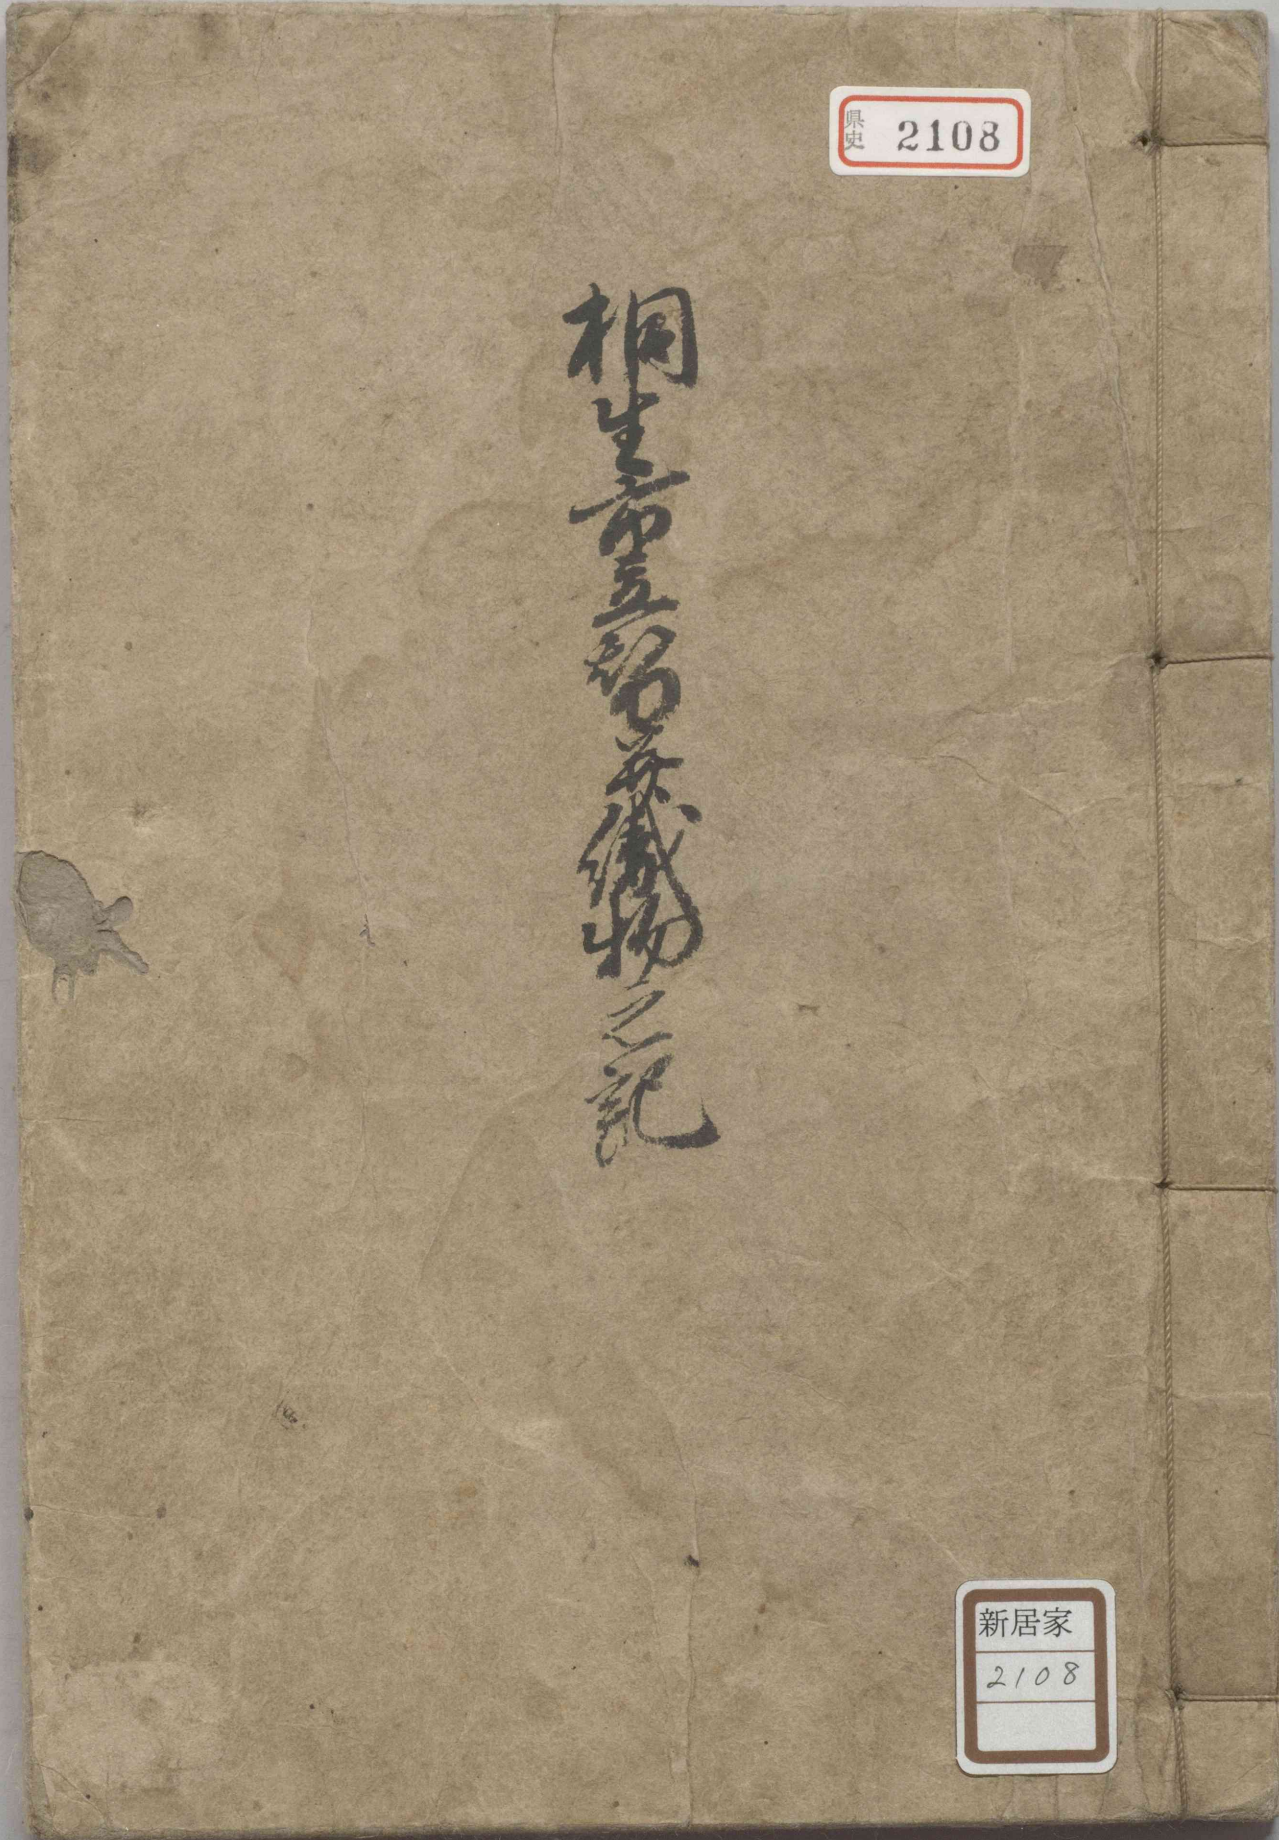 県史 2108
桐生市立初并織物之記
新居家
2108